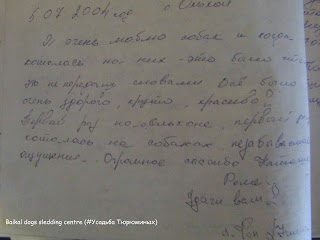 5 07 2004 год с. Онгой
Я очень люблю собак и когда
каталась на них - это было что-то
не передать словами. Всё было
очень здорово, круто, красиво!
Первый раз на Ольхоне, первый раз
каталась на собаках незабываемые
ощущения. Огромное спасибо
Рома.
Удачи вам!
Baikal dogs sledding centre (#Усадьба Тюрюминых)